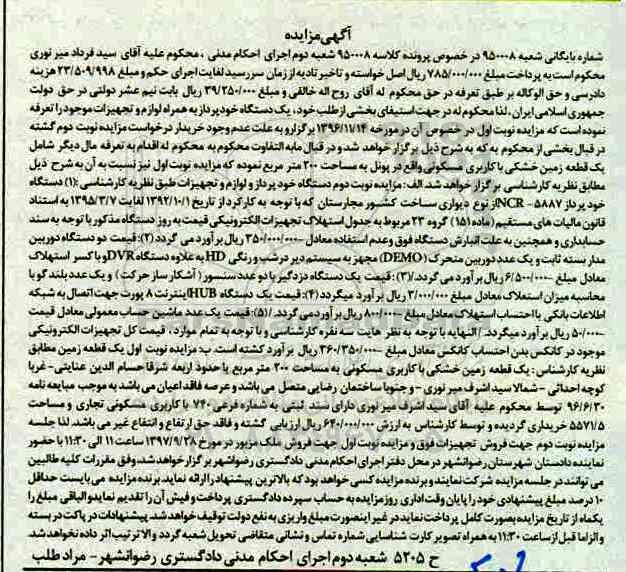 آگهی مزایده
شماره بایگانی شعبه ۹۵۰۰۰۸ در خصوص پرونده کلاسه ۹۵۰۰۰۸ شعبه دوم اجرای احکام مدنی، محکوم علیه آقای سید فرداد میر نوری
محکوم است به پرداخت مبلغ ۷۸۵/۰۰۰/۰۰۰ ریال اصل خواسته و تاخیر تادیه از زمان سررسید لغایت اجرای حکم و مبلغ ۲۳/۵۰۹/۹۹۸ هزینه
دادرسی و حق الوکاله بر طبق تعرفه در حق محکوم له آقای روح اله خالقی و مبلغ ۳۹/۲۵۰/۰۰۰ ریال بابت نیم عشر دولتی در حق دولت
جمهوری اسلامی ایران، لذا محکوم له در جهت استیفای بخشی از طلب خود، یک دستگاه خودپرداز به همراه لوازم و تجهیزات موجود را تعرفه
نموده است که مزایده نوبت اول در خصوص آن در مورخه ۱۳۹۶/۱۱/۱۴ برگزار و به علت عدم وجود خریدار درخواست مزایده نوبت دوم گشته
در قبال بخشی از محکوم به که به شرح ذیل برگزار خواهد شد و در قبال مابه التفاوت محکوم به محکوم له اقدام به تعرفه مال دیگر شامل
یک قطعه زمین خشکی با کاربری مسکونی واقع در پونل به مساحت ۲۰۰ متر مربع نموده که مزایده نوبت اول نیز نسبت به آن به شرح ذیل
مطابق نظریه کارشناسی برگزار خواهد شد. الف: مزایده نوبت دوم دستگاه خود پرداز و لوازم و تجهیزات طبق نظریه کارشناسی: (۱) دستگاه
خود پرداز ۵۸۸۷-NCR از نوع دیواری ساخت کشور مجارستان که با توجه به کارکرد از تاریخ ۱۳۹۲/۱۰/۱ لغایت ۱۳۹۵/۳/۷ به استناد
قانون مالیات های مستقیم (ماده ۱۵۱) گروه ۲۳ مربوط به جدول استهلاک تجهیزات الکترونیکی قیمت به روز دستگاه مذکور با توجه به سند
حسابداری و همچنین به علت انبارش دستگاه فوق و عدم استفاده معادل -/۳۵۰/۰۰۰/۰۰۰ ریال برآورد می گردد (۲): قیمت دو دستگاه دوربین
مدار بسته ثابت و یک عدد دوربین متحرک (DEMO) مجهز به سیستم دید در شب و رنگی HD به علاوه دستگاه DVR و با کسر استهلاک
معادل مبلغ -/۶/۵۰۰/۰۰۰ ریال برآورد می گردد./(۳): قیمت یک دستگاه دزدگیر با دو عدد سنسور (آشکار ساز حرکت) و یک عدد بلندگو با
محاسبه میزان استهلاک معادل مبلغ ۳/۰۰۰/۰۰۰ ریال برآورد میگردد (۴): قیمت یک دستگاه HUB اینترنت ۸ پورت جهت اتصال به شبکه
اطلاعات بانکی با احتساب استهلاک معادل مبلغ -/۸۰۰/۰۰۰ ریال برآورد می گردد. /(۵): قیمت یک عدد ماشین حساب معمولی معادل قیمت
-/۵۰/۰۰۰ ریال برآورد میگردد. / النهایه با توجه به نظر هایت سه نفره کارشناسی و با توجه به تمام موارد، قیمت کل تجهیزات الکترونیکی
موجود در کانکس بدن احتساب کانکس معادل مبلغ -/۳۶۰/۳۵۰/۰۰۰ ریال برآورد گشته است. ب: مزایده نوبت اول یک قطعه زمین مطابق
نظریه کارشناس: یک قطعه زمین خشکی با کاربری مسکونی به مساحت ۲۰۰ متر مربع با حدود اربعه شرقا حسام الدین عنایتی- غربا
کوچه احداثی - شمالا سید اشرف میر نوری - و جنوبا ساختمان رضایی متصل می باشد و عرصه فاقد اعیان می باشد به موجب مبایعه نامه
۹۶/۶/۳۰ توسط محکوم علیه آقای سید اشرف میر نوری دارای سند ثبتی به شماره فرعی ۷۴۰ با کاربری مسکونی تجاری و مساحت
۵۵۷۱/۵ خریداری گردیده و توسط کارشناس به ارزش ۶۴۰/۰۰۰/۰۰۰ ریال ارزیابی گشته و فاقد حق ارتفاع و انتفاع غیر می باشد. لذا جلسه
مزایده نوبت دوم جهت فروش تجهیزات فوق و مزایده نوبت اول جهت فروش ملک مزبور در مورخ ۱۳۹۷/۹/۲۸ ساعت ۱۱ الی ۱۱:۳۰ با حضور
نماینده دادستان شهرستان رضوانشهر در محل دفتر اجرای احکام مدنی دادگستری رضوانشهر برگزار خواهد شد. وفق مقررات کلیه طالبین
می توانند در جلسه مزایده شرکت نمایند و برنده مزایده کسی خواهد بود که بالاترین پیشنهاد را ارائه نماید. برنده مزایده می بایست حداقل
۱۰ درصد مبلغ پیشنهادی خود را پایان وقت اداری روز مزایده به حساب سپرده دادگستری پرداخت و فیش آن را تقدیم نماید و الباقی مبلغ را
یکماه از تاریخ مزایده بصورت کامل پرداخت نماید در غیر اینصورت مبلغ واریزی به نفع دولت توقیف خواهد شد. پیشنهادات در پاکت در بسته
و الزاما قبل از ساعت ۱۱:۳۰ به همراه تصویر کارت شناسایی شماره تماس و نشانی متقاضی تحویل شعبه گردد والا ترتیب اثر داده نخواهد شد.
ح ۵۲۰۵ شعبه دوم اجرای احکام مدنی دادگستری رضوانشهر- مراد طلب